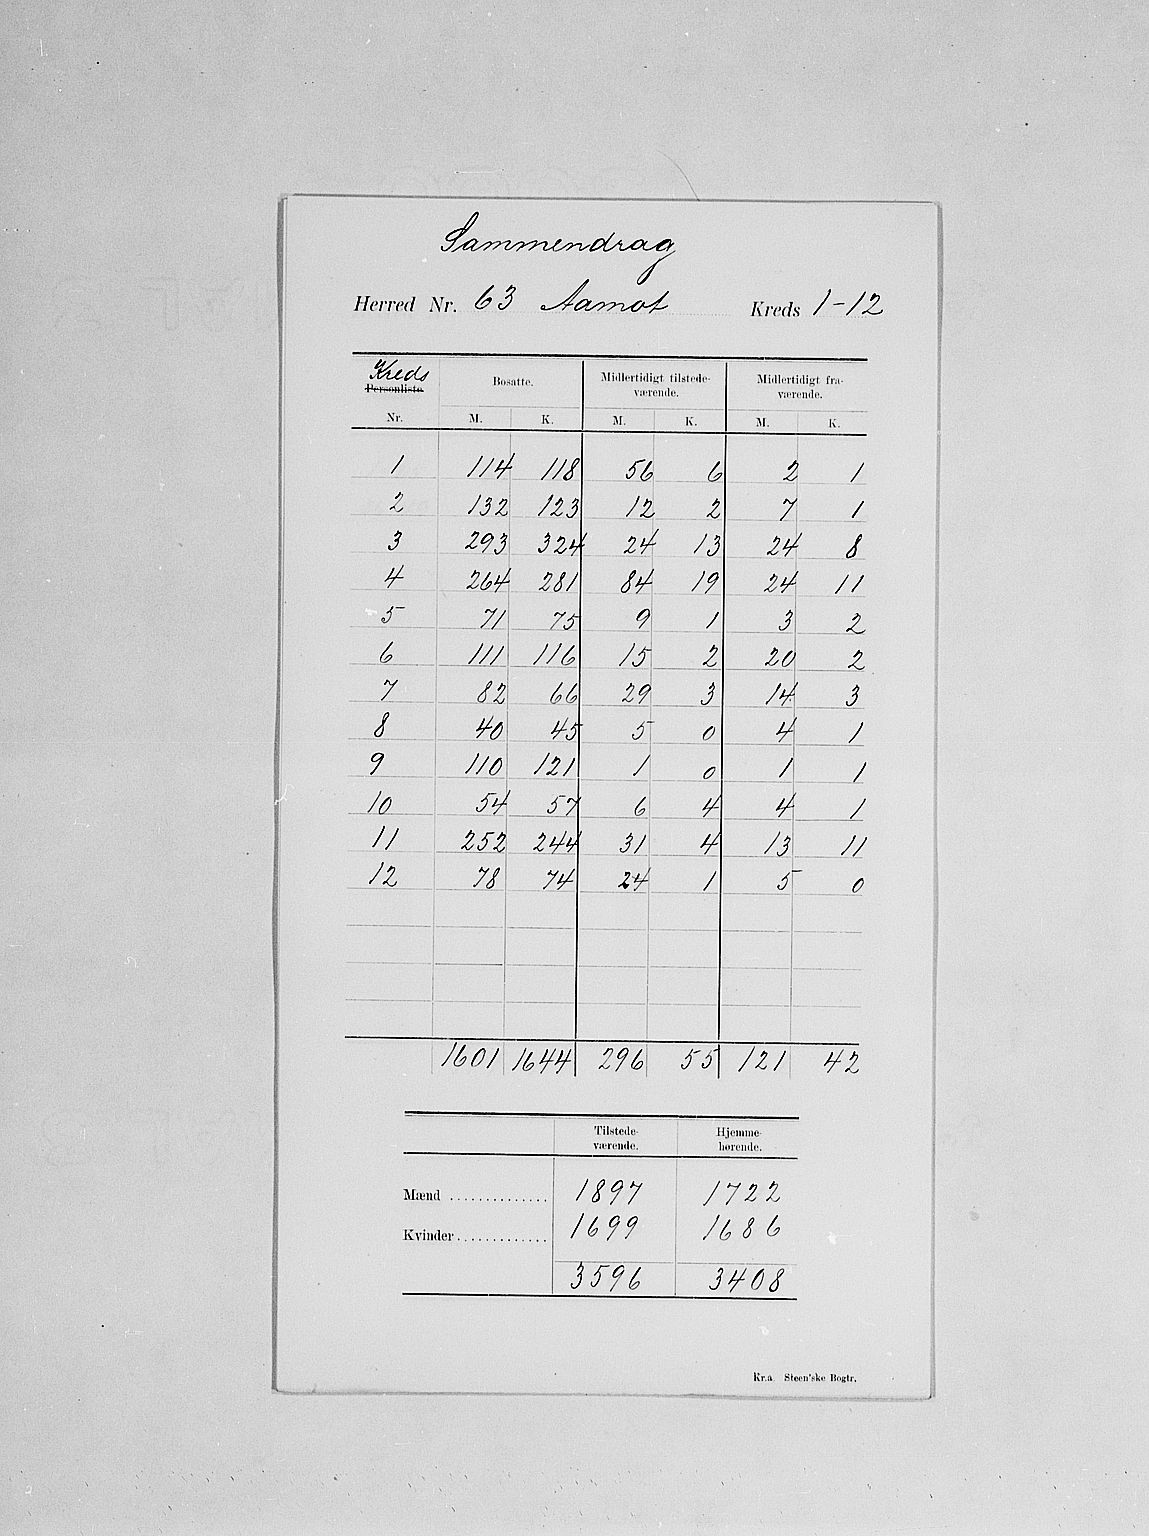 Sammendrag
Herred Nr. 63 Aamot Kreds 1-12
Kreds Bosatte. Midlertidigt tilstede- Midlertidigt fra-
Personliste værende. værende.
Nr. M. K. M. K. M. K.
1 114 118 56 6 2 1
2 132 123 12 2 7 1
3 293 324 24 13 24 8
4 264 281 84 19 24 11
5 71 75 9 1 3 2
6 111 116 15 2 20 2
7 82 66 29 3 14 3
8 40 45 5 0 4 1
9 110 121 1 0 1 1
10 54 57 6 4 4 1
11 252 244 31 4 13 11
12 78 74 24 1 5 0
1601 1644 296 55 121 42
Tilstede- Hjemme-
værende. hørende.
Mænd .............. 1897 1722
Kvinder............. 1699 1686
3596 3408
Kr.a Steen'ske Bogtr.